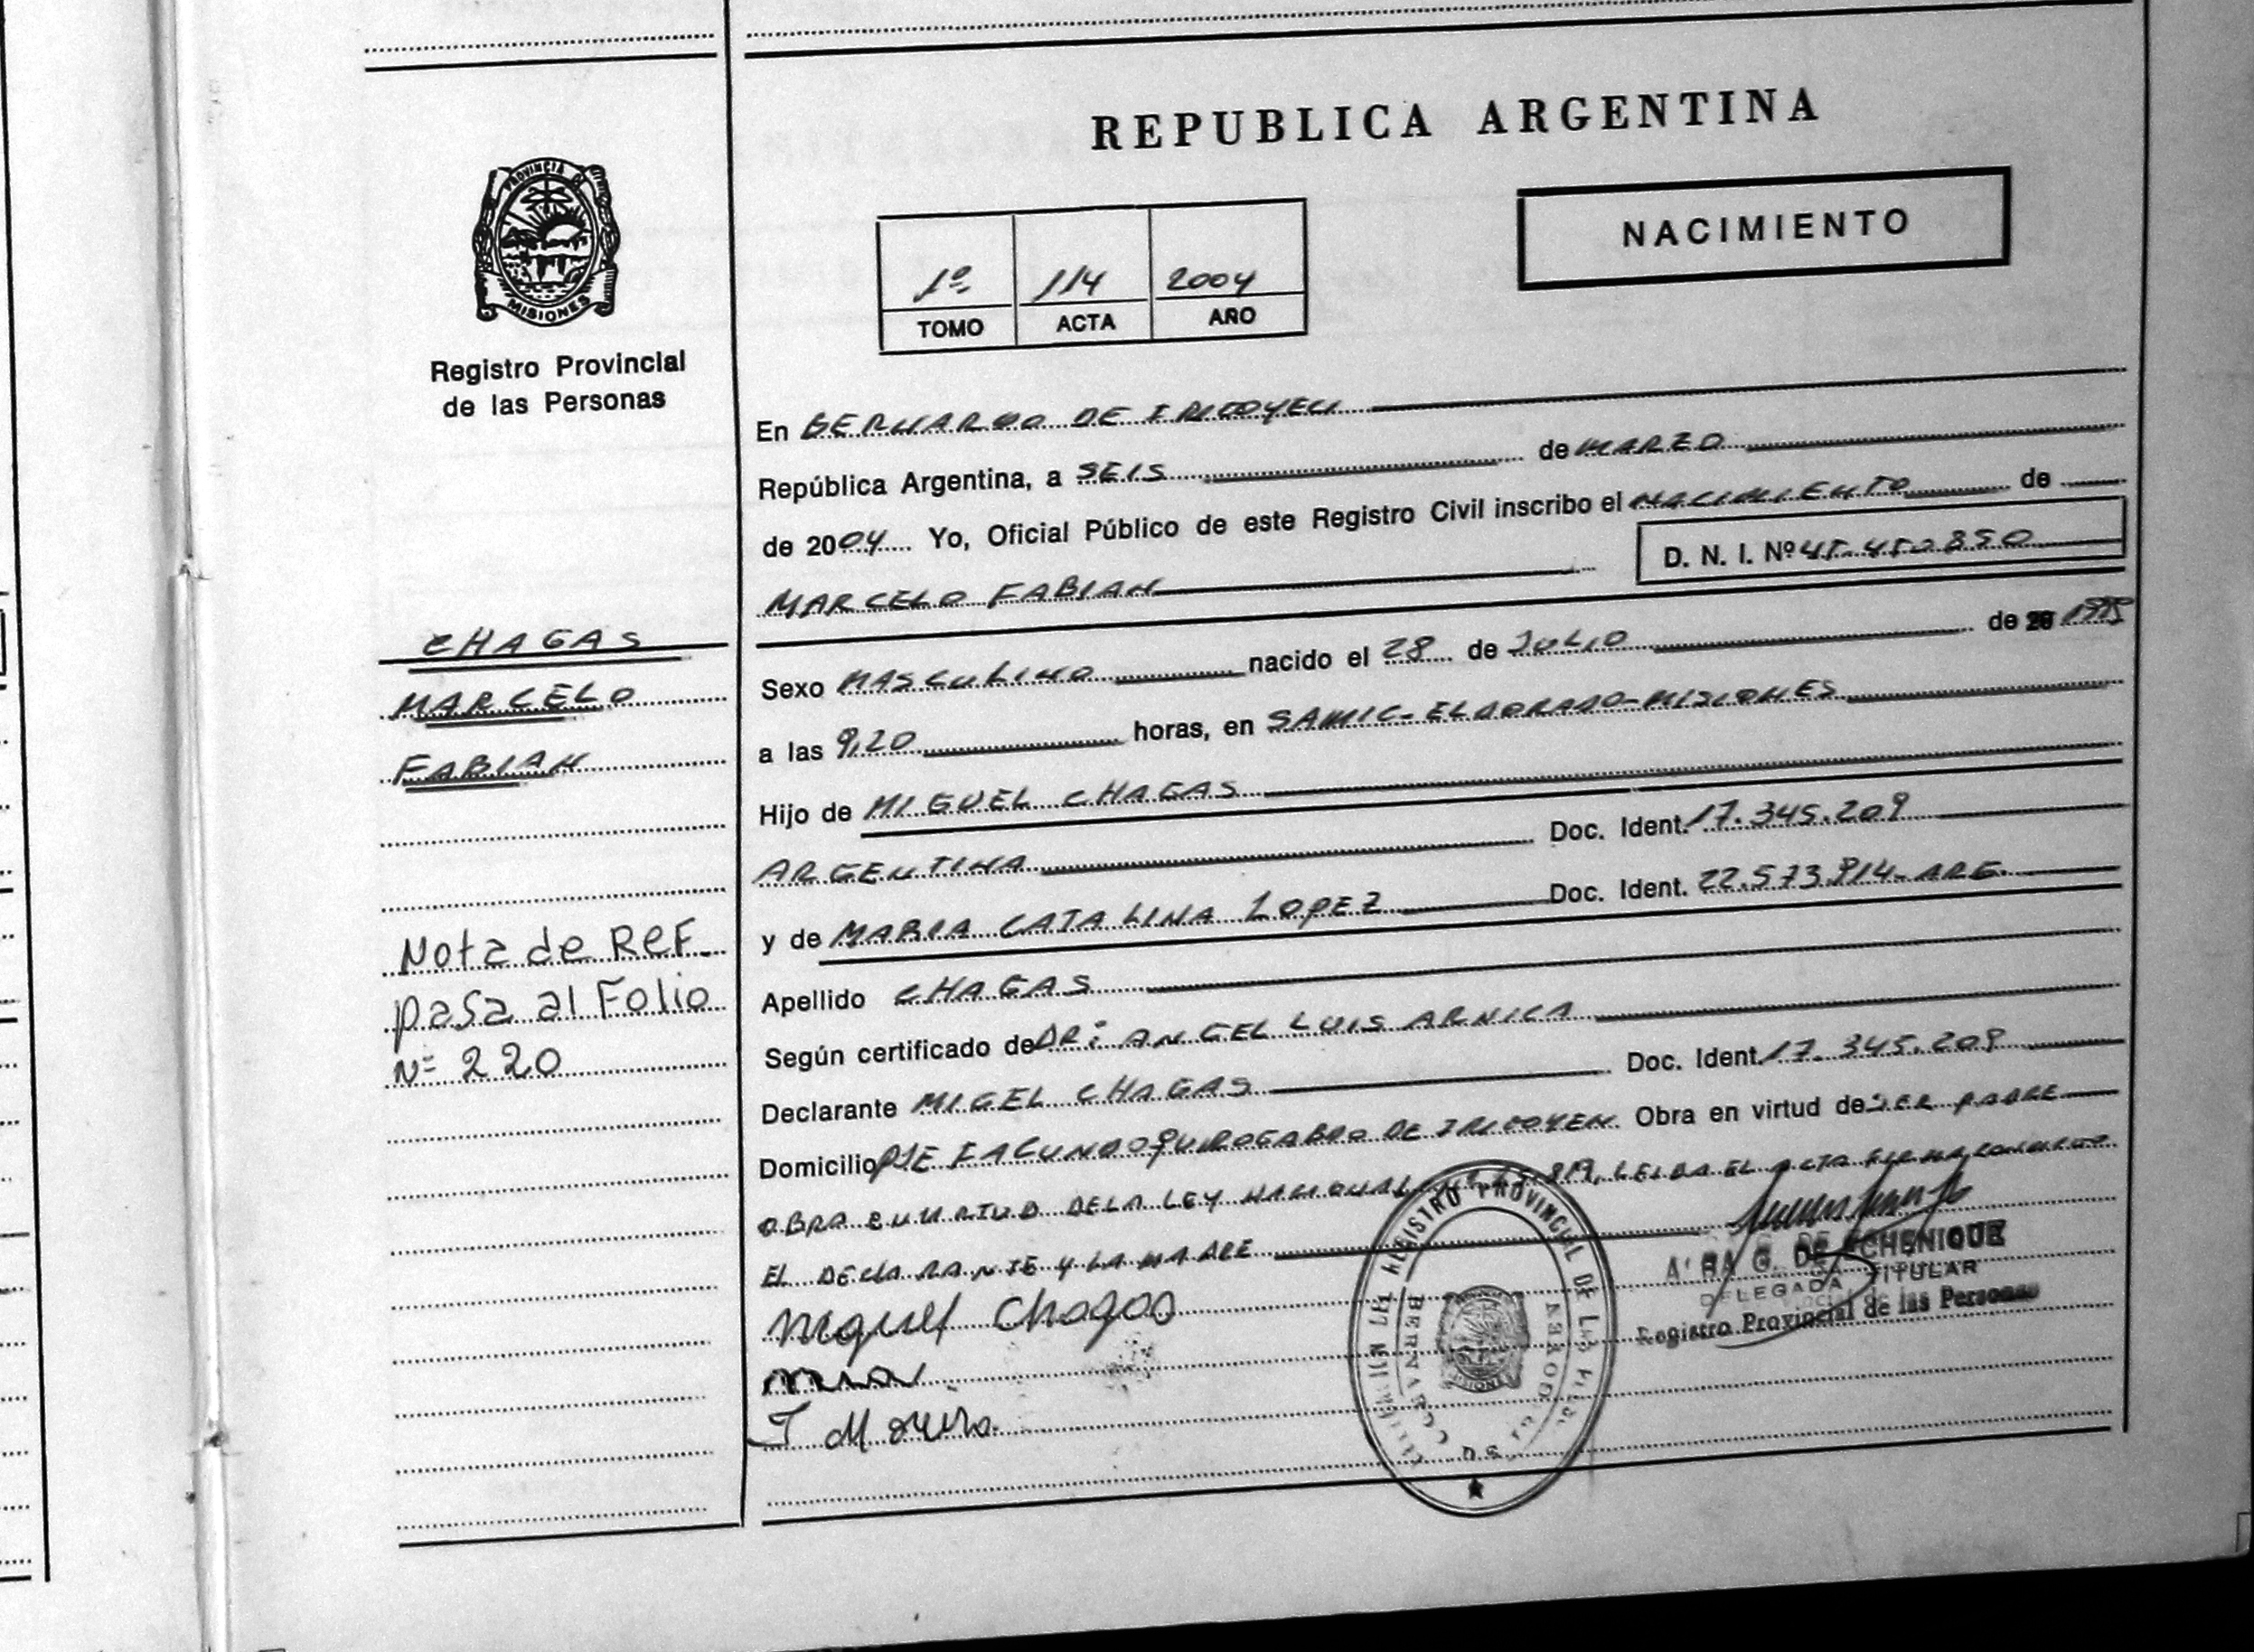 REPUBLICA ARGENTINA
NACIMIENTO
PROVINCIA DE
MISIONES
1º 114 2004
TOMO ACTA AÑO
Registro Provincial
de las Personas
En BERNARDO DE IRIGOYEN
República Argentina, a SEIS de MARZO
de 2004 Yo, Oficial Público de este Registro Civil inscribo el NACIMIENTO de
D. N. I. Nº
MARCELO FABIAN
CHAGAS
MARCELO
FABIAN
Sexo MASCULINO nacido el 28 de JULIO de
a las 9,20 horas, en SAMIC-ELDORADO-MISIONES
Hijo de MIGUEL CHAGAS
ARGENTINA Doc. Ident. 17.345.209
y de MARIA CATALINA LOPEZ Doc. Ident. 22.573.914-ARG.
Apellido CHAGAS
Según certificado de DR: ANGEL LUIS ARNICA
Declarante MIGEL CHAGAS Doc. Ident. 17.345.209
Domicilio PJE FACUNDO QUIROGA BDO DE IRIGOYEN Obra en virtud de SER PADRE
OBRA EN VIRTUD DE LA LEY NACIONAL Nº 25.819, LEIDA EL ACTA FIRMA CONMIGO
EL DECLARANTE Y LA MADRE
Nota de REF.
pasa al Folio
Nº 220
Miguel Chagas
REGISTRO PROVINCIAL DE LAS
G. DE ECHENIQUE
DELEGADA TITULAR
Registro Provincial de las Personas